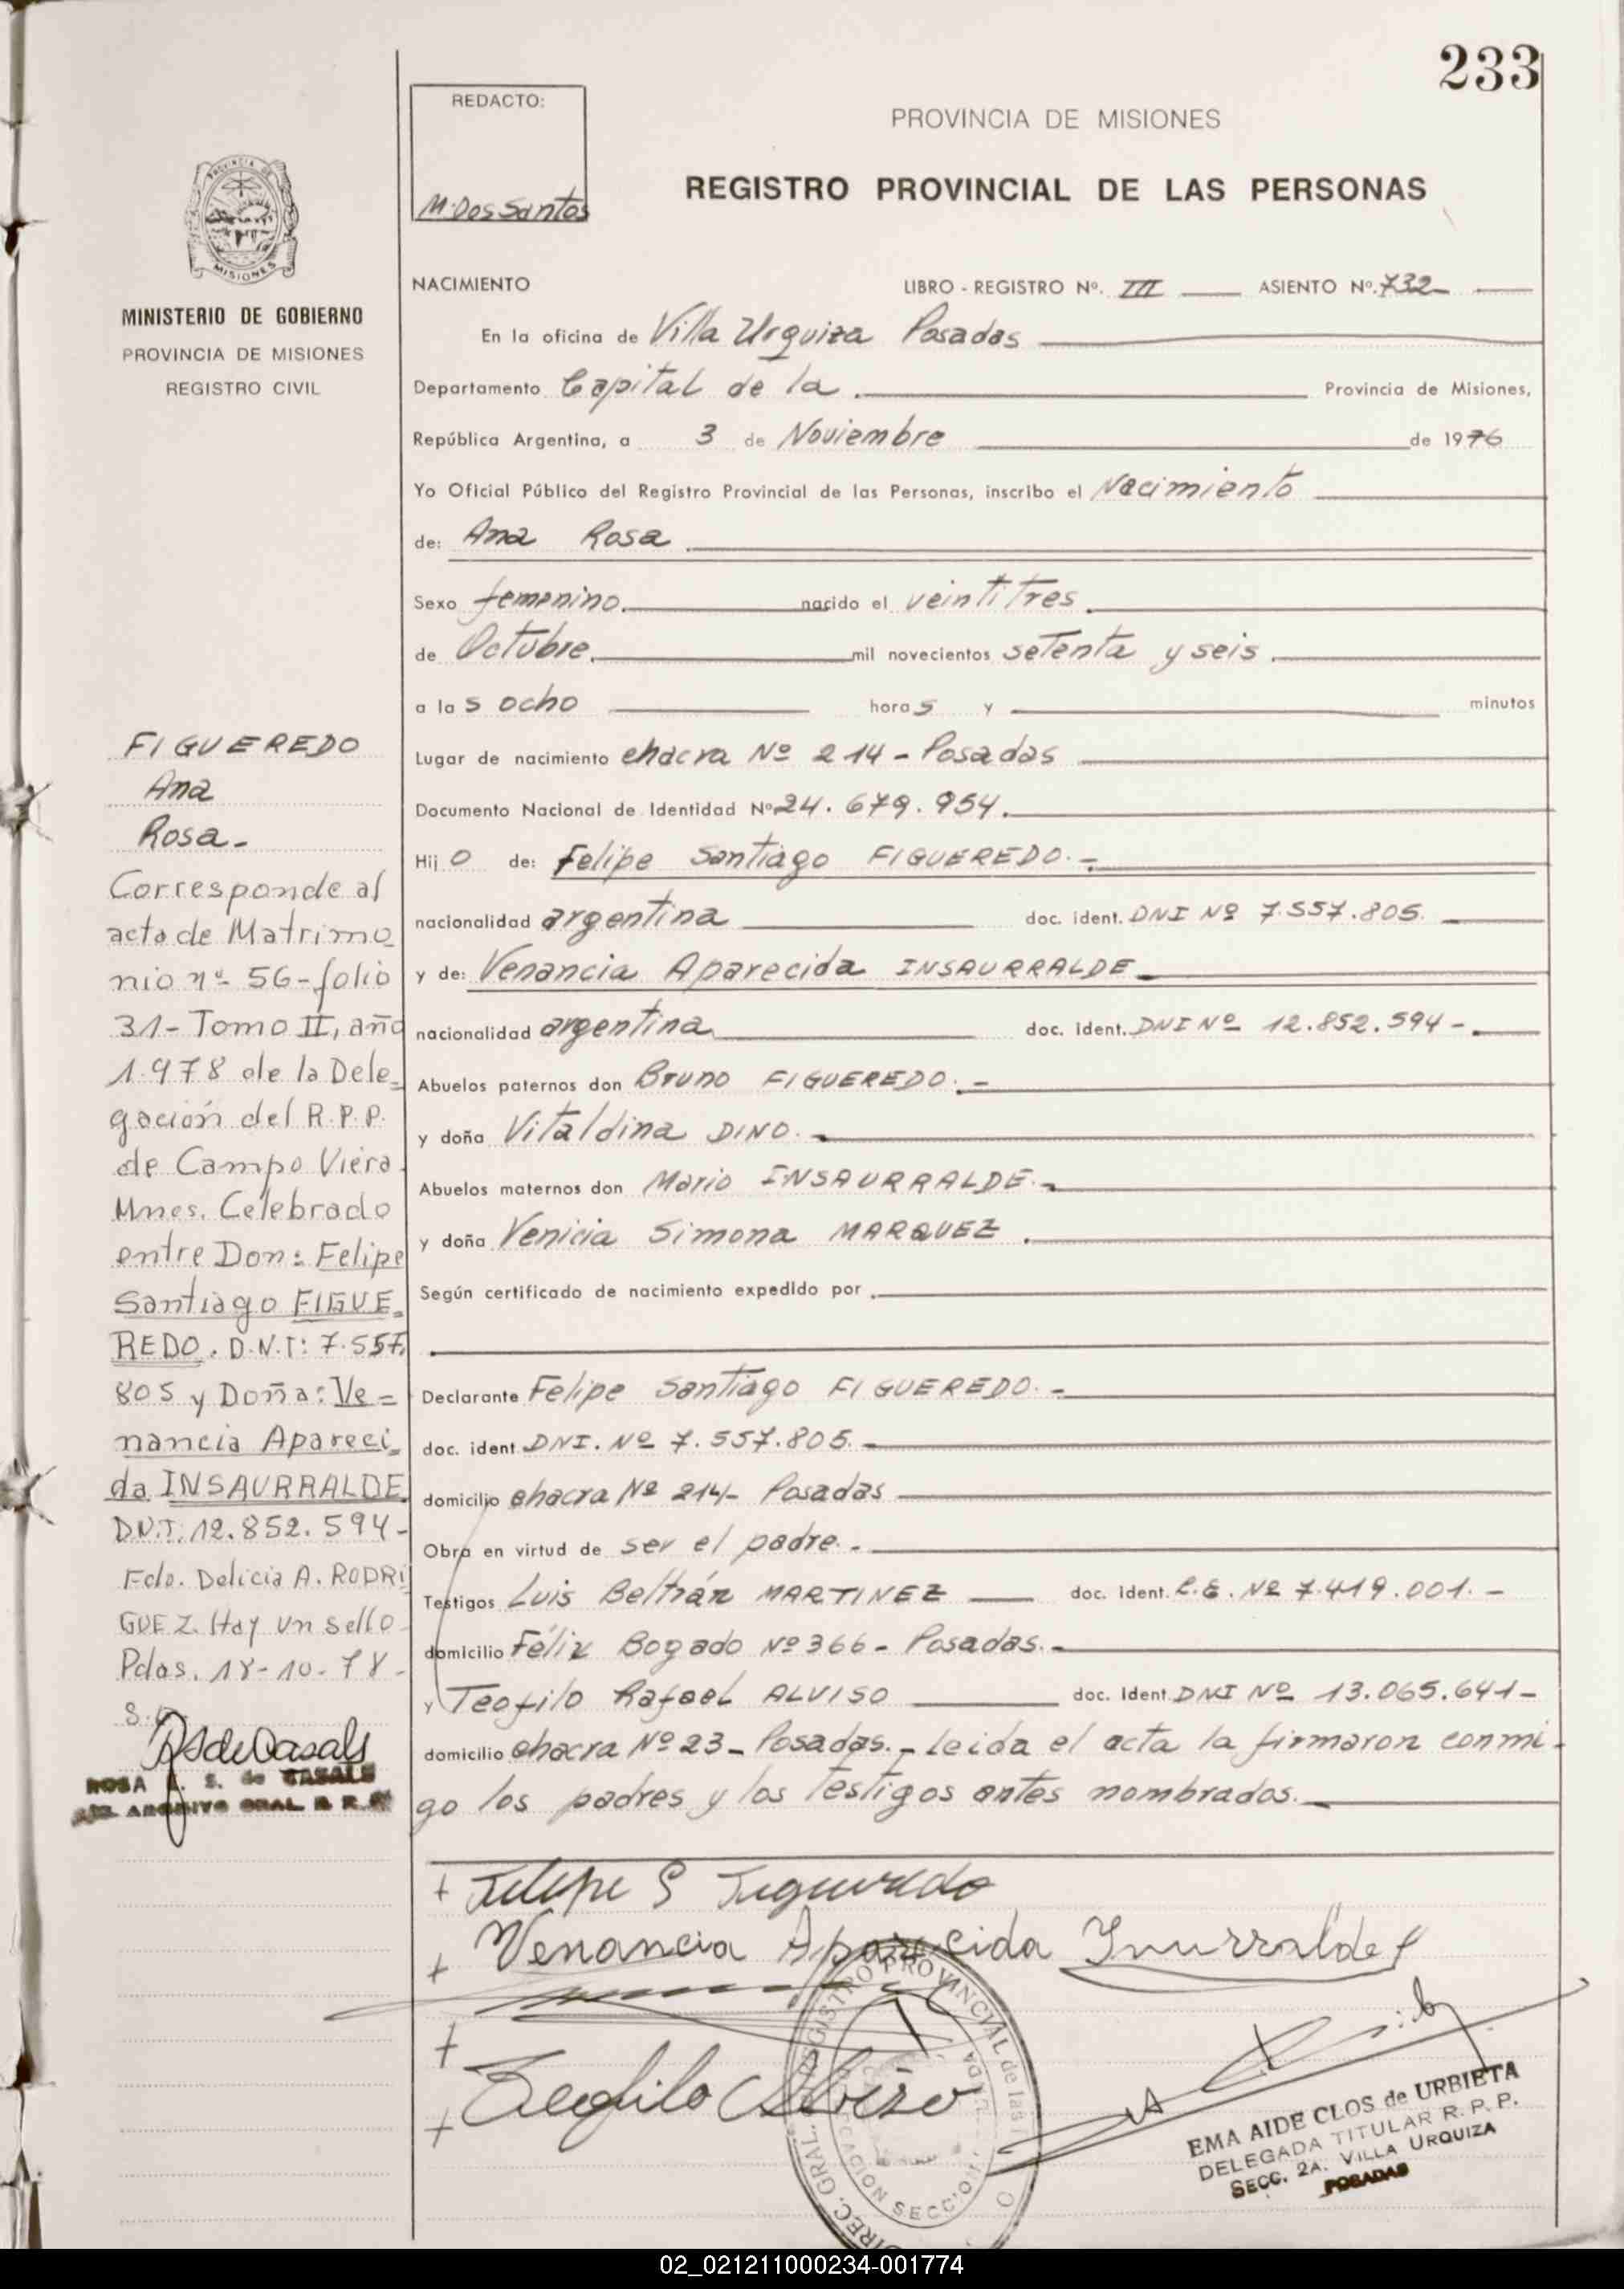 233
REDACTO:
M. Dos Santos
PROVINCIA DE MISIONES
REGISTRO PROVINCIAL DE LAS PERSONAS
PROVINCIA DE
MISIONES
MINISTERIO DE GOBIERNO
PROVINCIA DE MISIONES
REGISTRO CIVIL
NACIMIENTO LIBRO - REGISTRO Nº. III ASIENTO Nº. 732
En la oficina de Villa Urquiza Posadas
Departamento Capital de la Provincia de Misiones,
República Argentina, a 3 de Noviembre de 1976
Yo Oficial Público del Registro Provincial de las Personas, inscribo el Nacimiento
de: Ana Rosa
Sexo femenino. nacido el veintitres
de Octubre. mil novecientos setenta y seis
a las ocho horas y minutos
Lugar de nacimiento chacra Nº 214 - Posadas
Documento Nacional de Identidad Nº 24.679.954.
Hijo de: Felipe Santiago FIGUEREDO. -
nacionalidad argentina doc. ident. DNI Nº 7.557.805.
y de: Venancia Aparecida INSAURRALDE
nacionalidad argentina doc. ident. DNI Nº 12.852.594 -
Abuelos paternos don Bruno FIGUEREDO. -
y doña Vitaldina DINO. -
Abuelos maternos don Mario INSAURRALDE. -
y doña Venicia Simona MARQUEZ
Según certificado de nacimiento expedido por
Declarante Felipe Santiago FIGUEREDO. -
doc. ident. DNI. Nº 7.557.805. -
domicilio chacra Nº 214 - Posadas
Obra en virtud de ser el padre. -
Testigos Luis Beltrán MARTINEZ doc. ident. L.E. Nº 7.419.001. -
domicilio Félix Bogado Nº 366 - Posadas. -
y Teofilo Rafael ALVISO doc. Ident. DNI Nº 13.065.641 -
domicilio chacra Nº 23 - Posadas. - leida el acta la firmaron conmi-
go los padres y los testigos antes nombrados.
FIGUEREDO
Ana
Rosa -
Corresponde al
acta de Matrimo
nio nº 56 - folio
31 - Tomo II, año
1.978 de la Dele=
gación del R.P.P.
de Campo Viera
Mnes. Celebrado
entre Don: Felipe
Santiago FIGUE=
REDO. D.N.I: 7.557.
805 y Doña: Ve=
nancia Apareci=
da INSAURRALDE
D.N.I: 12.852.594 -
Fdo. Delicia A. RODRI
GUEZ. Hay un sello
Pdas. 18-10-78 -
RS de Casals
ROSA S. de CASALS
+ Felipe S Figueredo
+ Venancia Aparecida Insurralde
+
+ Teofilo Alviso
DIREC. GRAL. REGISTRO PROVINCIAL de las
SECCION
EMA AIDE CLOS de URBIETA
DELEGADA TITULAR R. P. P.
SECC. 2A. VILLA URQUIZA
POSADAS
02_021211000234-001774